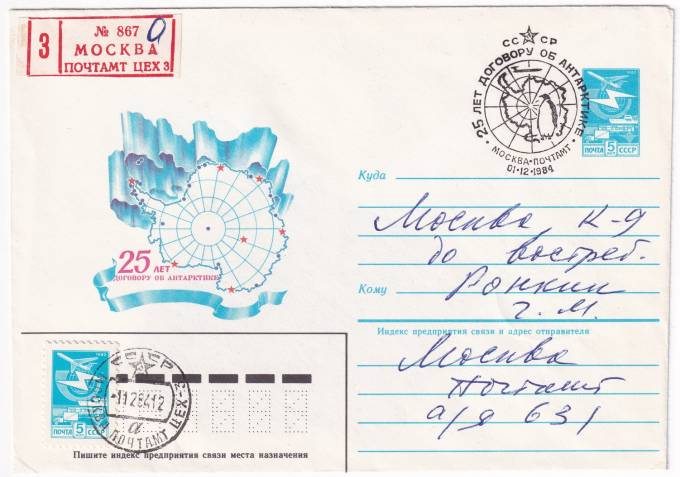 № 867
0
3
МОСКВА
ПОЧТАМТ ЦЕХ 3
СССР
25 ЛЕТ ДОГОВОРУ ОБ АНТАРКТИКЕ
МОСКВА-ПОЧТАМТ
01·12·1984
ПОЧТА 5 СССР
25 ЛЕТ
ДОГОВОРУ ОБ АНТАРКТИКЕ
Куда
Москва К-9
до востреб.
Кому
Ронкин
г. М.
Индекс предприятия связи и адрес отправителя
Москва
Почтамт
а/я 631
1982
ПОЧТА 5 СССР
СССР
-1128412
МОСКВА ПОЧТАМТ ЦЕХ-2
а
Пишите индекс предприятия связи места назначения